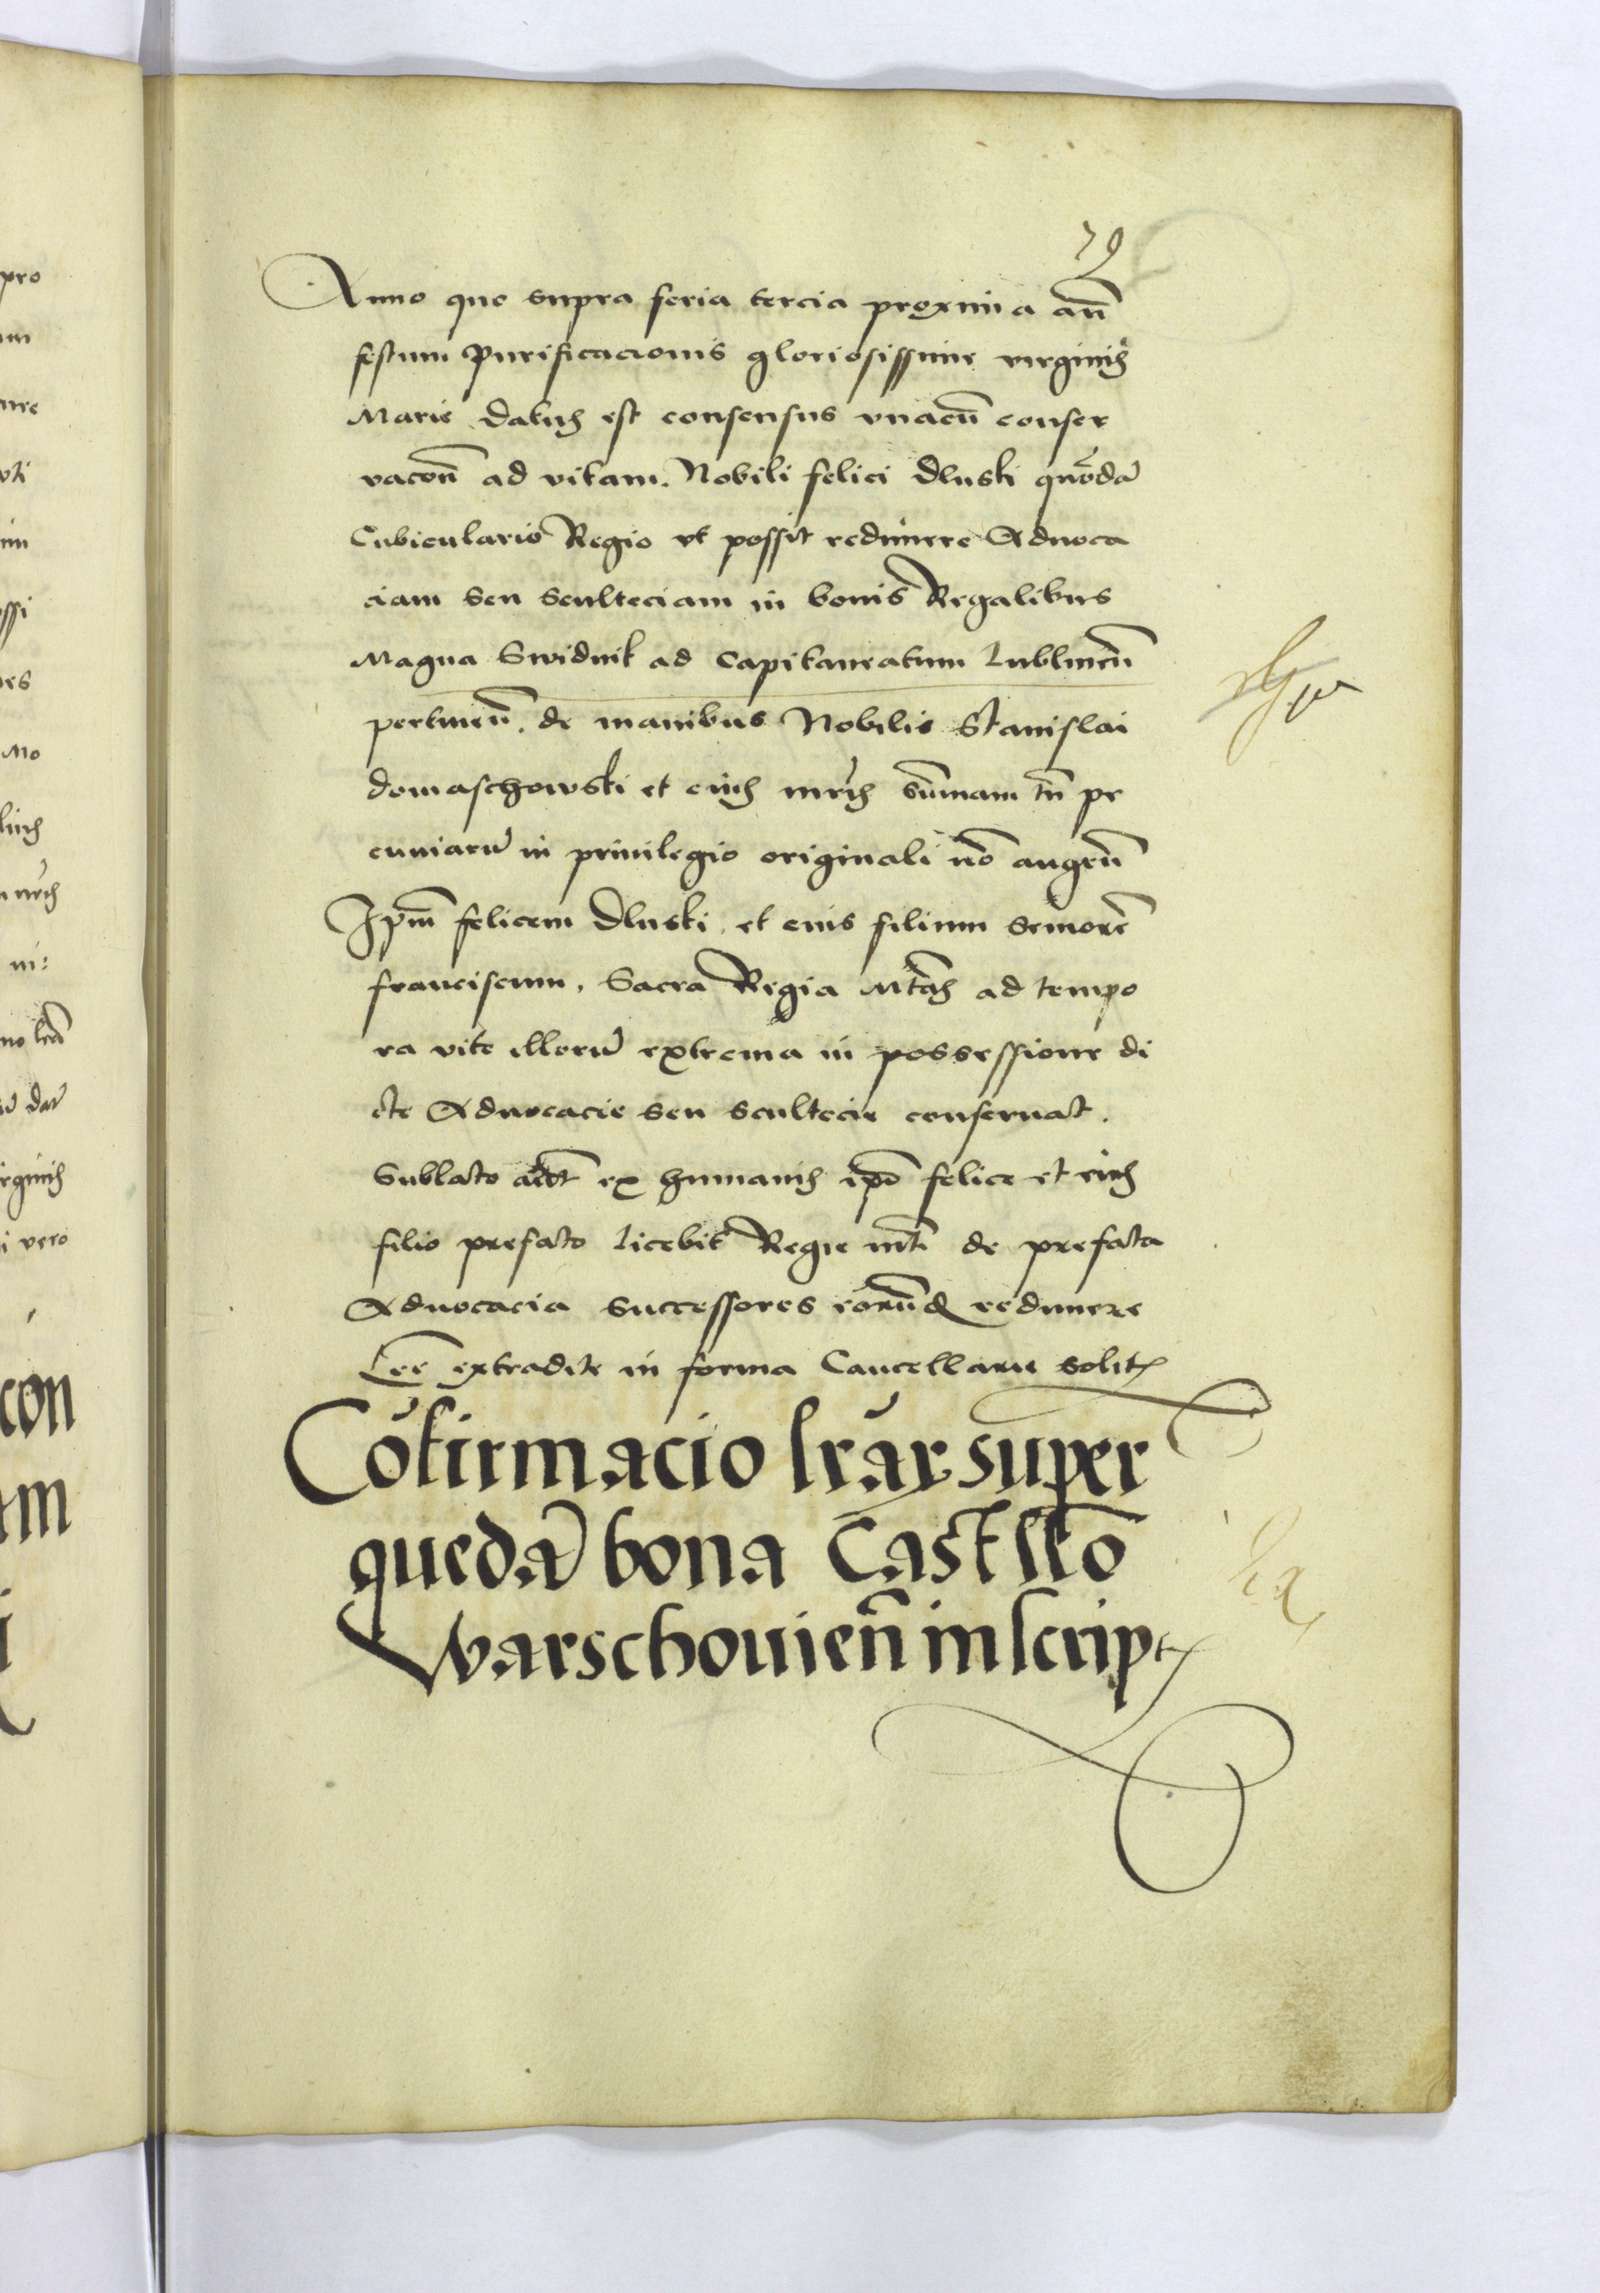 79
Anno quo supra feria tercia proxima añ
festum Purificacionis gloriosissime virginis
Marie datus est consensus vnacū conser
vacoñ ad vitam. Nobili felici Dluski quōdā
Cubiculario Regio vt possit redimere Aduoca
ciam seu sculteciam in bonis Regalibus
Magna Swidnik ad Capitaneatum Lublineñ
pertineñ. de manibus Nobilis Stanislai
domaschowski et eius mris sūmam tñ pe
cuniarū in priuilegio originali nō augeñ
Ipm̄ felicem Dluski. et eius filium seniorē
franciscum. Sacra Regia Mtas ad tempo
ra vite illorū extrema in possessione di
cte Aduocacie seu scultecie conseruat.
Sublato aūt ex humanis ipō felice et eius
filio prefato licebit Regie mti de prefata
Aduocacia successores eorūd redimere
Lrē extradite in forma Cancellarie solit
Cōfirmacio lrār super
quedā bona Castllō
Warschouieñ inscript